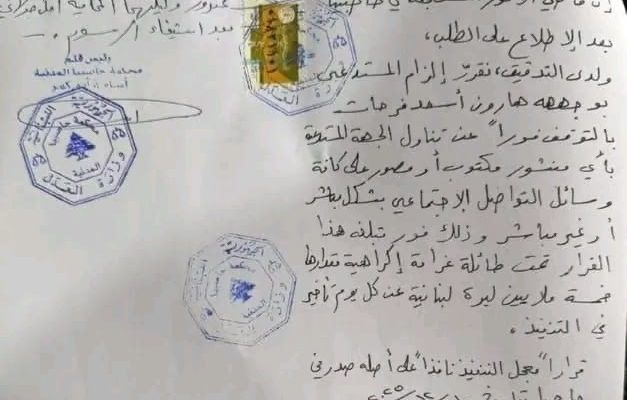 بعد الإطلاع على الطلب،
ولدى التدقيق، نقرّر إلزام المستدعى
بوجهه هارون أسعد فرحات
بالتوقف فوراً عن تناول الجهة المستدعية
بأي منشور مكتوب أو مصور على كافة
وسائل التواصل الإجتماعي بشكل مباشر
أو غير مباشر وذلك فور تبلغه هذا
القرار تحت طائلة غرامة إكراهية مقدارها
خمسة ملايين ليرة لبنانية عن كل يوم تأخير
في التنفيذ.
قراراً معجل التنفيذ نافذاً على أصله صدر في
بعد استيفاء الرسوم
رئيس قلم
محكمة حاصبيا المدنية
الجمهورية اللبنانية
وزارة العدل
محكمة حاصبيا
المدنية